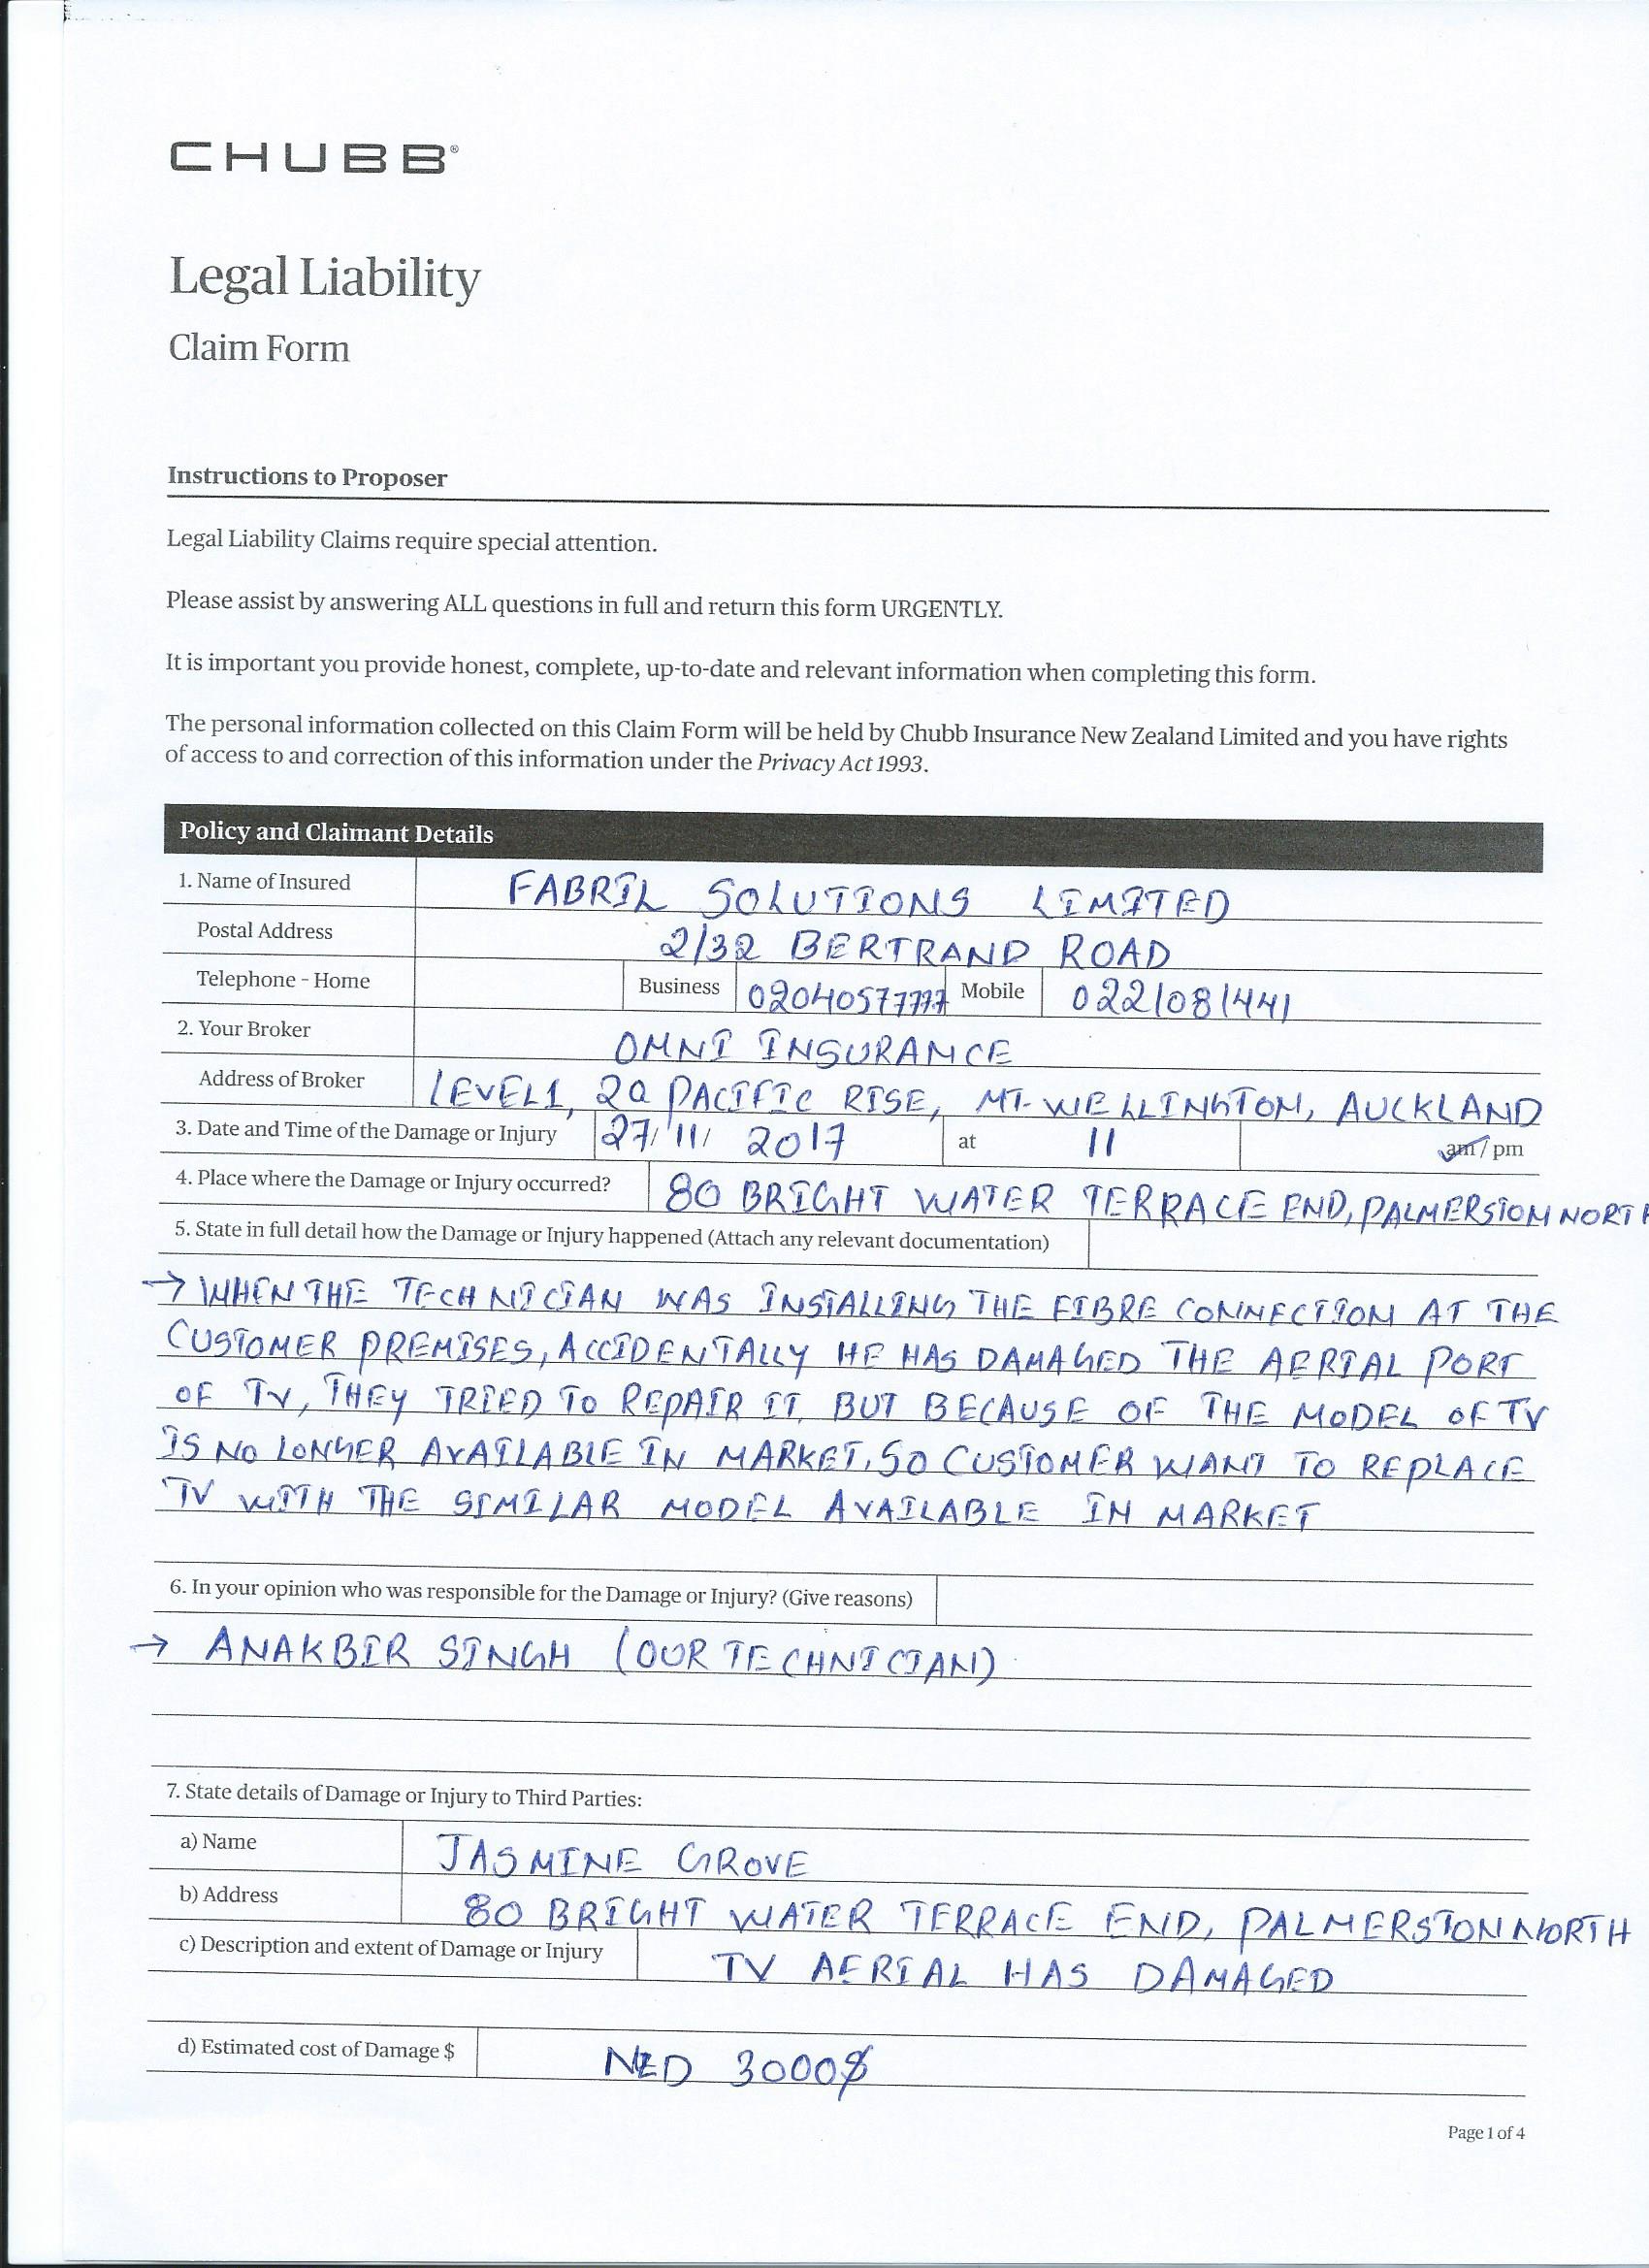 CHUBB®
Legal Liability
Claim Form
Instructions to Proposer
Legal Liability Claims require special attention.
Please assist by answering ALL questions in full and return this form URGENTLY.
It is important you provide honest, complete, up-to-date and relevant information when completing this form.
The personal information collected on this Claim Form will be held by Chubb Insurance New Zealand Limited and you have rights
of access to and correction of this information under the Privacy Act 1993.
Policy and Claimant Details
1. Name of Insured FABRIL SOLUTIONS LIMITED
Postal Address 2/32 BERTRAND ROAD
Telephone - Home Business 02040577777 Mobile 0221081441
2. Your Broker OMNI INSURANCE
Address of Broker LEVEL1, 2a PACIFIC RISE, MT. WELLINGTON, AUCKLAND
3. Date and Time of the Damage or Injury 27/11/ 2017 at 11 am / pm
4. Place where the Damage or Injury occurred? 80 BRIGHT WATER TERRACE END, PALMERSTON NORTH
5. State in full detail how the Damage or Injury happened (Attach any relevant documentation)
→ WHEN THE TECHNICIAN WAS INSTALLING THE FIBRE CONNECTION AT THE
CUSTOMER PREMISES, ACCIDENTALLY HE HAS DAMAGED THE AERIAL PORT
OF TV, THEY TRIED TO REPAIR IT, BUT BECAUSE OF THE MODEL OF TV
IS NO LONGER AVAILABLE IN MARKET. SO CUSTOMER WANT TO REPLACE
TV WITH THE SIMILAR MODEL AVAILABLE IN MARKET
6. In your opinion who was responsible for the Damage or Injury? (Give reasons)
→ ANAKBIR SINGH (OUR TECHNICIAN)
7. State details of Damage or Injury to Third Parties:
a) Name JASMINE GROVE
b) Address 80 BRIGHT WATER TERRACE END, PALMERSTON NORTH
c) Description and extent of Damage or Injury TV AERIAL HAS DAMAGED
d) Estimated cost of Damage $ NZD 3000$
Page 1 of 4